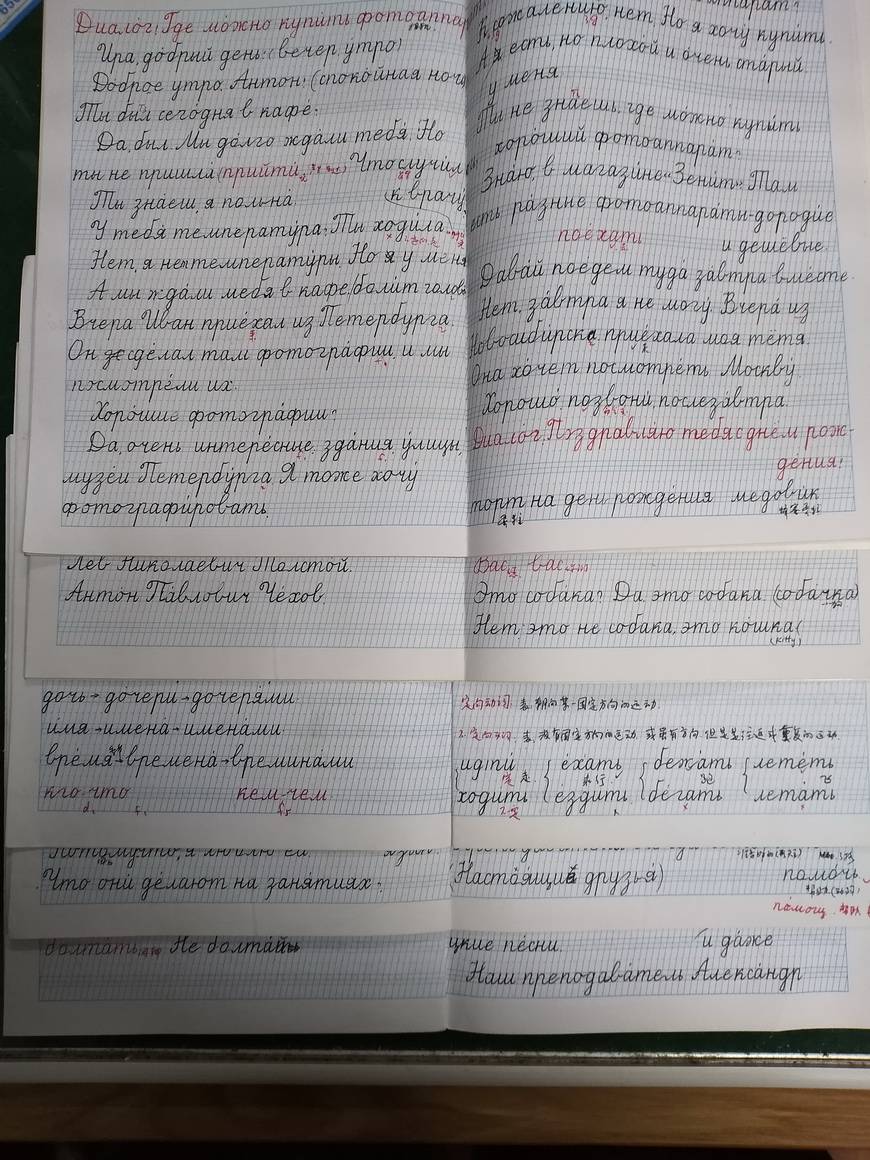 Диало́г: Где мо́жно купи́ть фотоаппар
Ира, до́брый день! (ве́чер, у́тро)
До́брое у́тро, Анто́н! (споко́йная ночь
Ты был сего́дня в кафе?
Да, был. Мы до́лго жда́ли тебя́. Но
ты не пришла́ (прийти́ Что случи́л
Ты зна́еш, я больна́. к врачу́
У тебя́ температу́ра? Ты ходи́ла
Нет, я нет температу́ры. Но я у меня
А мы жда́ли тебя в кафе. боли́т голова
Вчера Ива́н прие́хал из Петербу́рга.
Он сде́лал там фотогра́фии, и мы
посмотре́ли их.
Хоро́шие фотогра́фии?
Да, о́чень интере́сные: зда́ния, у́лицы,
музе́и Петербу́рга. Я то́же хочу́
фотографи́ровать.
К сожале́нию, нет. Но я хочу́ купи́ть.
А я есть, но плохо́й и о́чень ста́рый.
у меня
Ты не зна́ешь, где мо́жно купи́ть
хоро́ший фотоаппара́т?
Зна́ю, в магази́не «Зени́т». Там
есть ра́зные фотоаппара́ты - дороги́е
пое́хать и дешёвые.
Дава́й поедем туда́ за́втра вме́сте.
Нет, за́втра я не могу́. Вчера́ из
Новосиби́рска прие́хала моя тётя.
Она хо́чет посмотре́ть Москву́.
Хорошо́, позвони́ послеза́втра.
Диало́г: Поздравля́ю тебя́ с днём рож-
де́ния!
торт на день рожде́ния медови́к
Лев Николаевич Толстой.
Анто́н Па́влович Че́хов.
Вас вас
Это соба́ка? Да, э́то соба́ка. (соба́чка)
Нет, это не соба́ка, это ко́шка (
(Kitty)
дочь → до́чери → дочеря́ми
и́мя → имена́ → имена́ми
вре́мя → времена́ → времина́ми
кто что кем чем
定向动词: 表 朝向某一固定方向的运动.
идти́ е́хать бежа́ть лете́ть
ходи́ть е́здить бе́гать лета́ть
Потому́что, я люблю её.
Что они́ де́лают на заня́тиях?
(Настоя́щие друзья́)
помо́чь
по́мощ
болта́ть Не болта́й
цкие пе́сни. и да́же
Наш преподава́тель Алекса́ндр